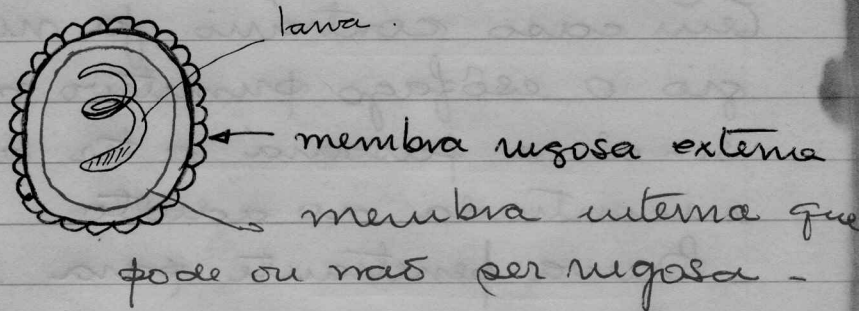 larva.
membra rugosa externa
membra interna que
pode ou não ser rugosa -